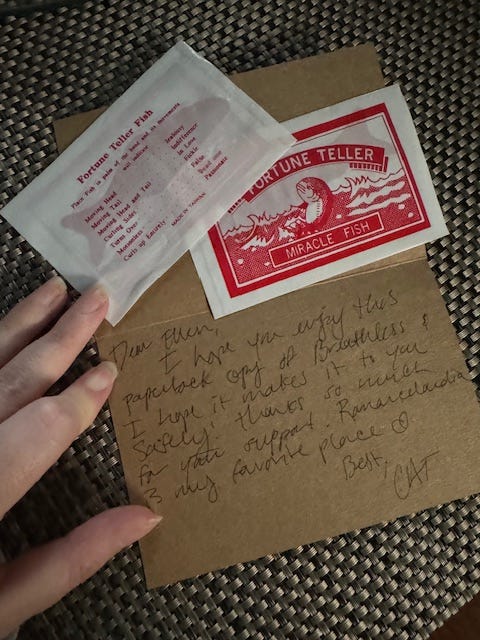 Fortune Teller Fish
Place Fish in palm of the hand and its movements
will indicate
Moving Head Jealousy
Moving Tail Indifference
Moving Head and Tail In Love
Curling Sides Fickle
Turns Over False
Motionless Dead one
Curls up Entirely Passionate
MADE IN TAIWAN
FORTUNE TELLER
MIRACLE FISH
Dear Ellen,
I hope you enjoy this
paperback copy of Breathless &
I hope it makes it to you
safely! Thanks so much
for your support.
is my favorite place
Best,
CAT